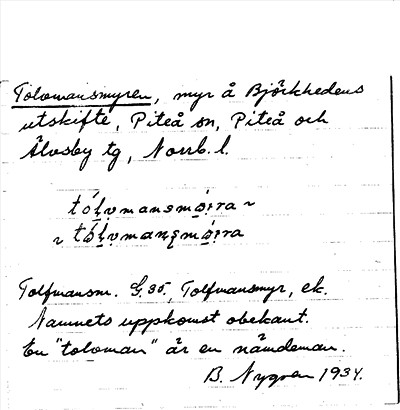 Tolvmansmyren, myr å Björkhedens
utskifte, Piteå sn, Piteå och
Älvsby tg, Norrb. l.
tó̱ḷvmansmø̱̀ṛra ~
~ tó̱ḷvmanṣmø̱̀ṛra
Tolfmansm. G. 35, Tolfmansmyr, ek.
Namnets uppkomst obekant.
En "tolvman" är en nämdeman.
B. Nygren 1934.